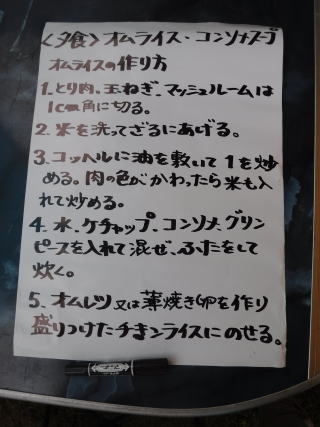 <夕食> オムライス・コンソメスープ
オムライスの作り方
1. とり肉、玉ねぎ、マッシュルームは
1cm角に切る。
2. 米を洗ってざるにあげる。
3. コッヘルに油を敷いて1を炒
める。肉の色がかわったら米も入
れて炒める。
4. 水、ケチャップ、コンソメ、グリン
ピースを入れて混ぜ、ふたをして
炊く。
5. オムレツ又は薄焼き卵を作り
盛りつけたチキンライスにのせる。